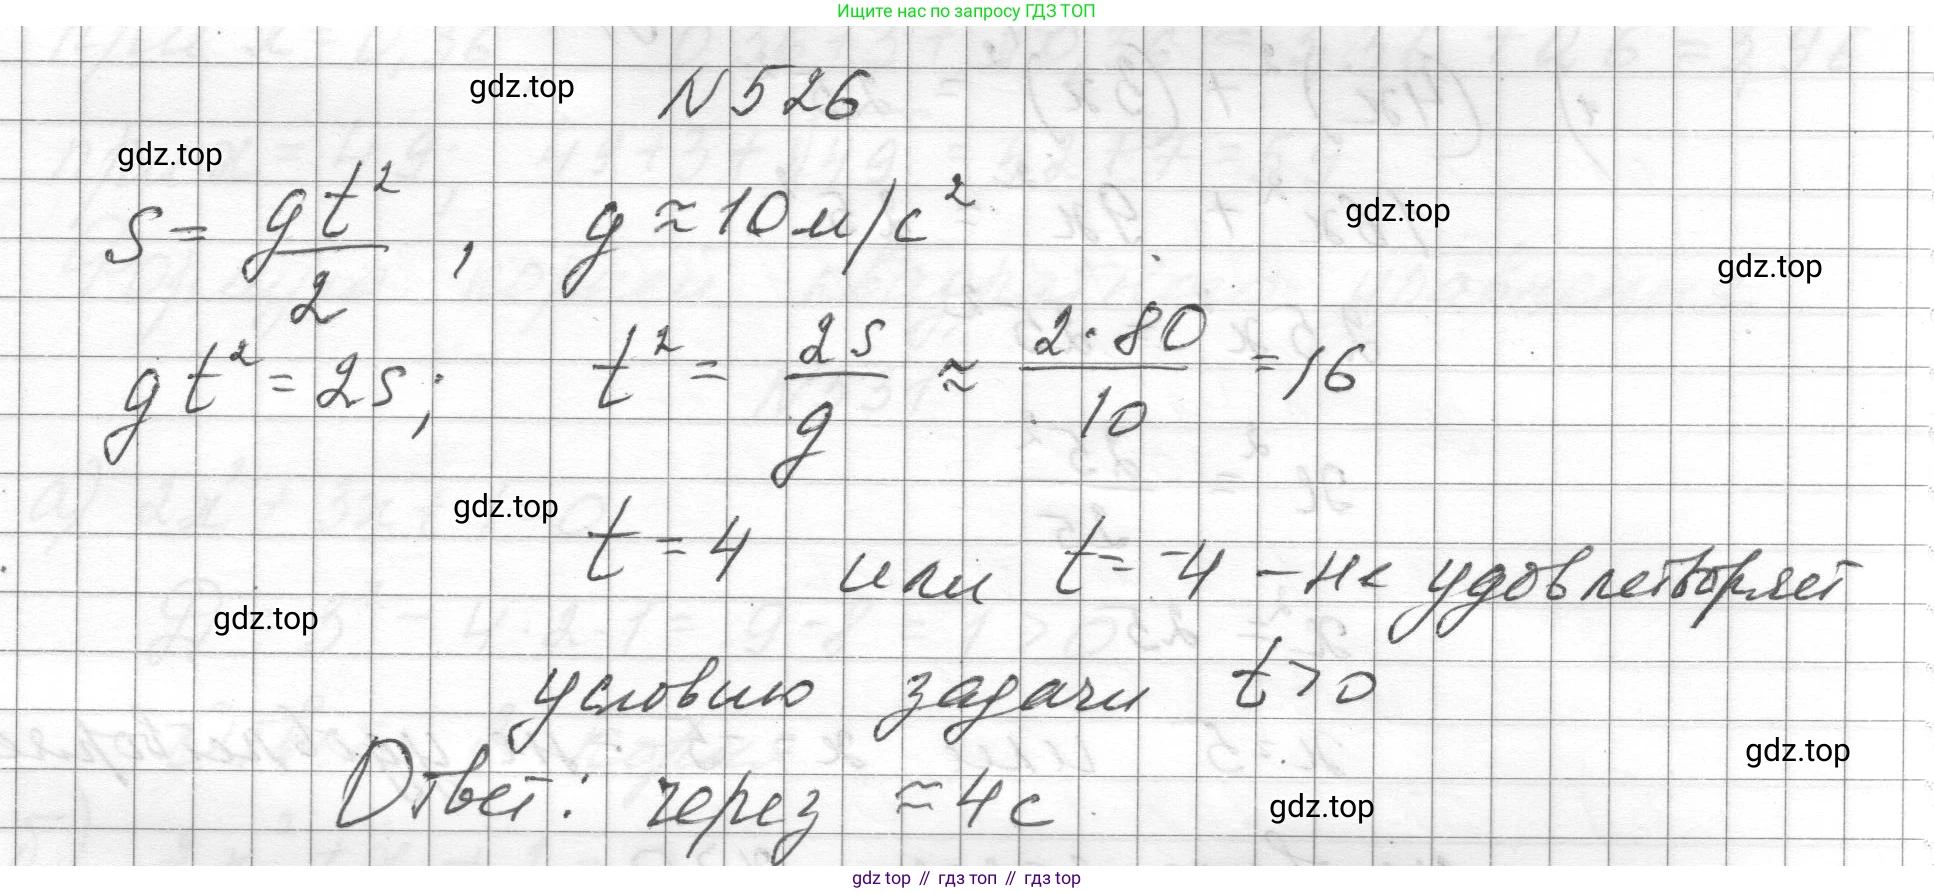 Ищите нас по запросу ГДЗ ТОП
gdz.top N 526
gdz.top
s = gt²/2 , g ≈ 10 м/с²
gdz.top
gdz.top
gt² = 2s; t² = 2s/g ≈ 2·80/10 = 16
gdz.top
t = 4 или t = -4 – не удовлетворяет
gdz.top
условию задачи t > 0
gdz.top
Ответ: через ≈ 4 с
gdz.top
gdz top // гдз топ // гдз top